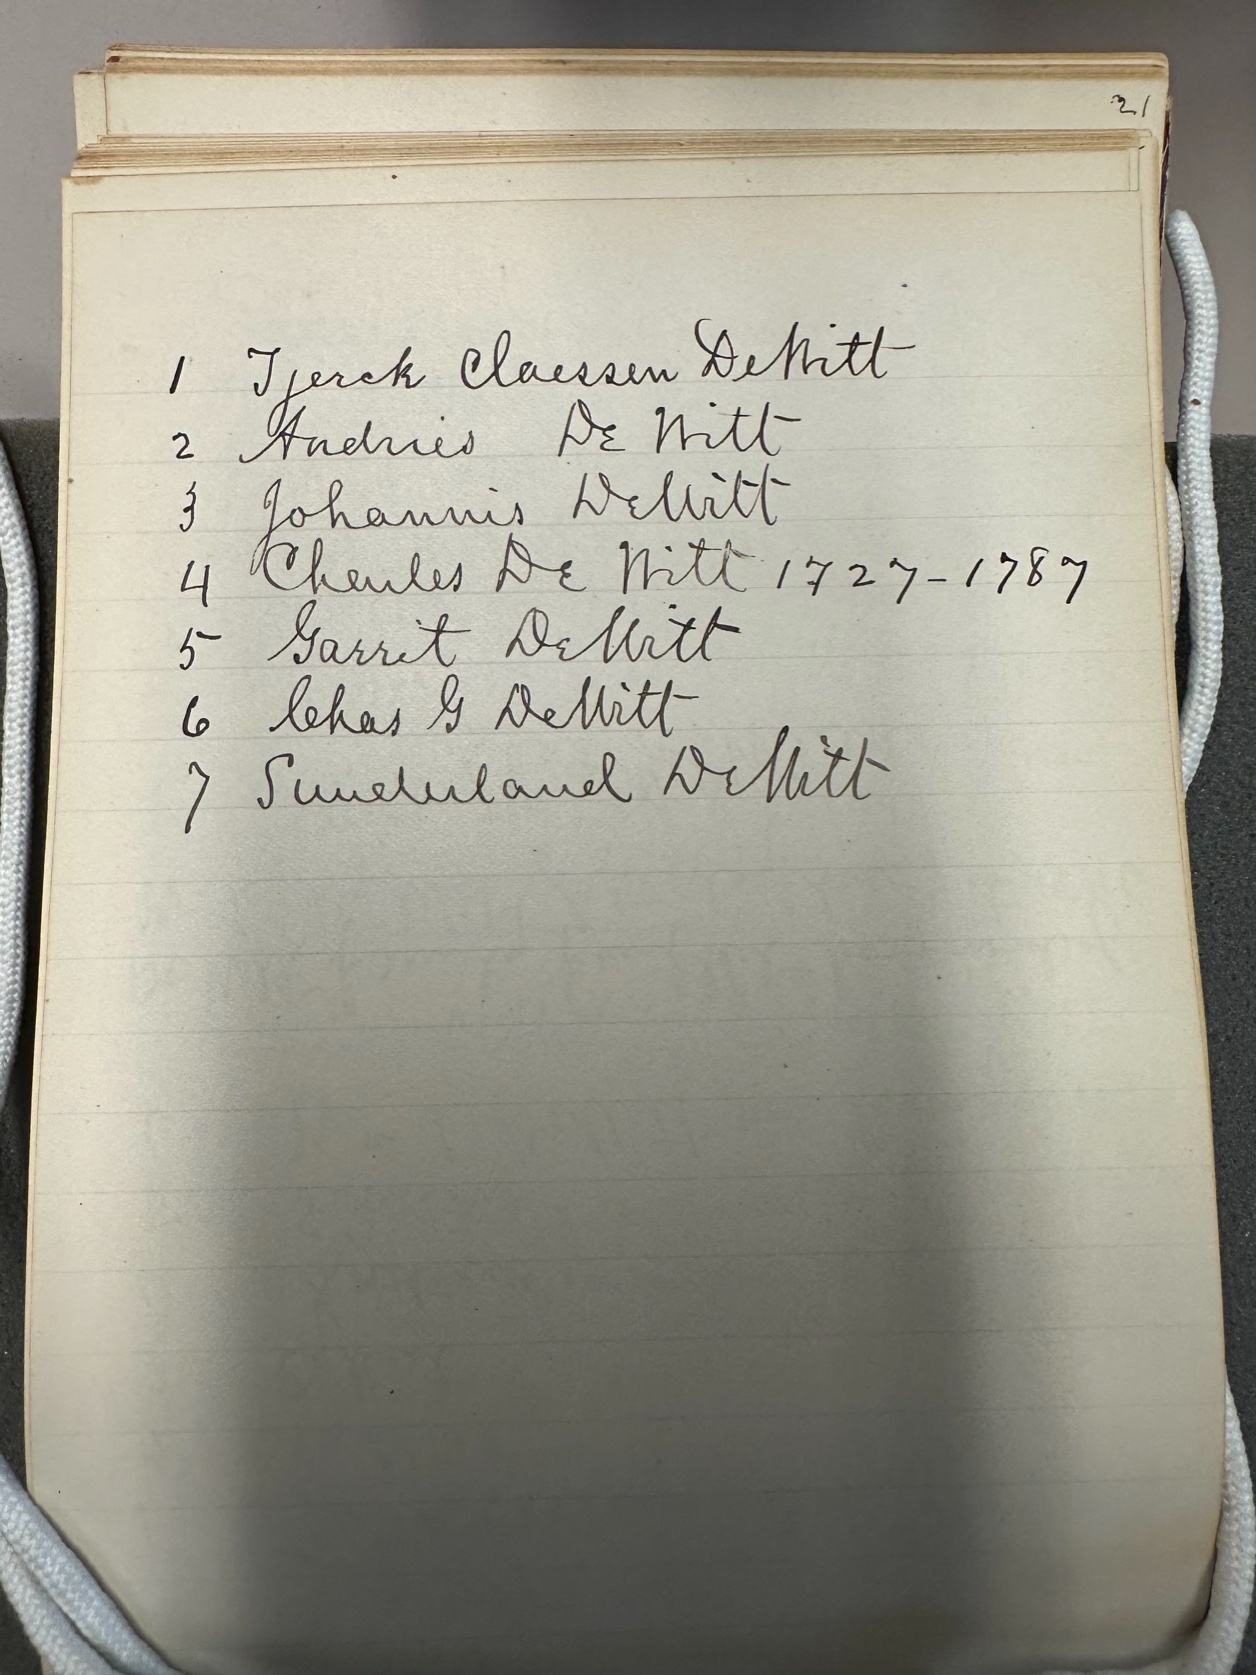 21
1 Tjerck Claessen DeWitt
2 Andries De Witt
3 Johannis DeWitt
4 Charles De Witt 1727-1787
5 Garrit DeWitt
6 Chas G DeWitt
7 Sunderland DeWitt